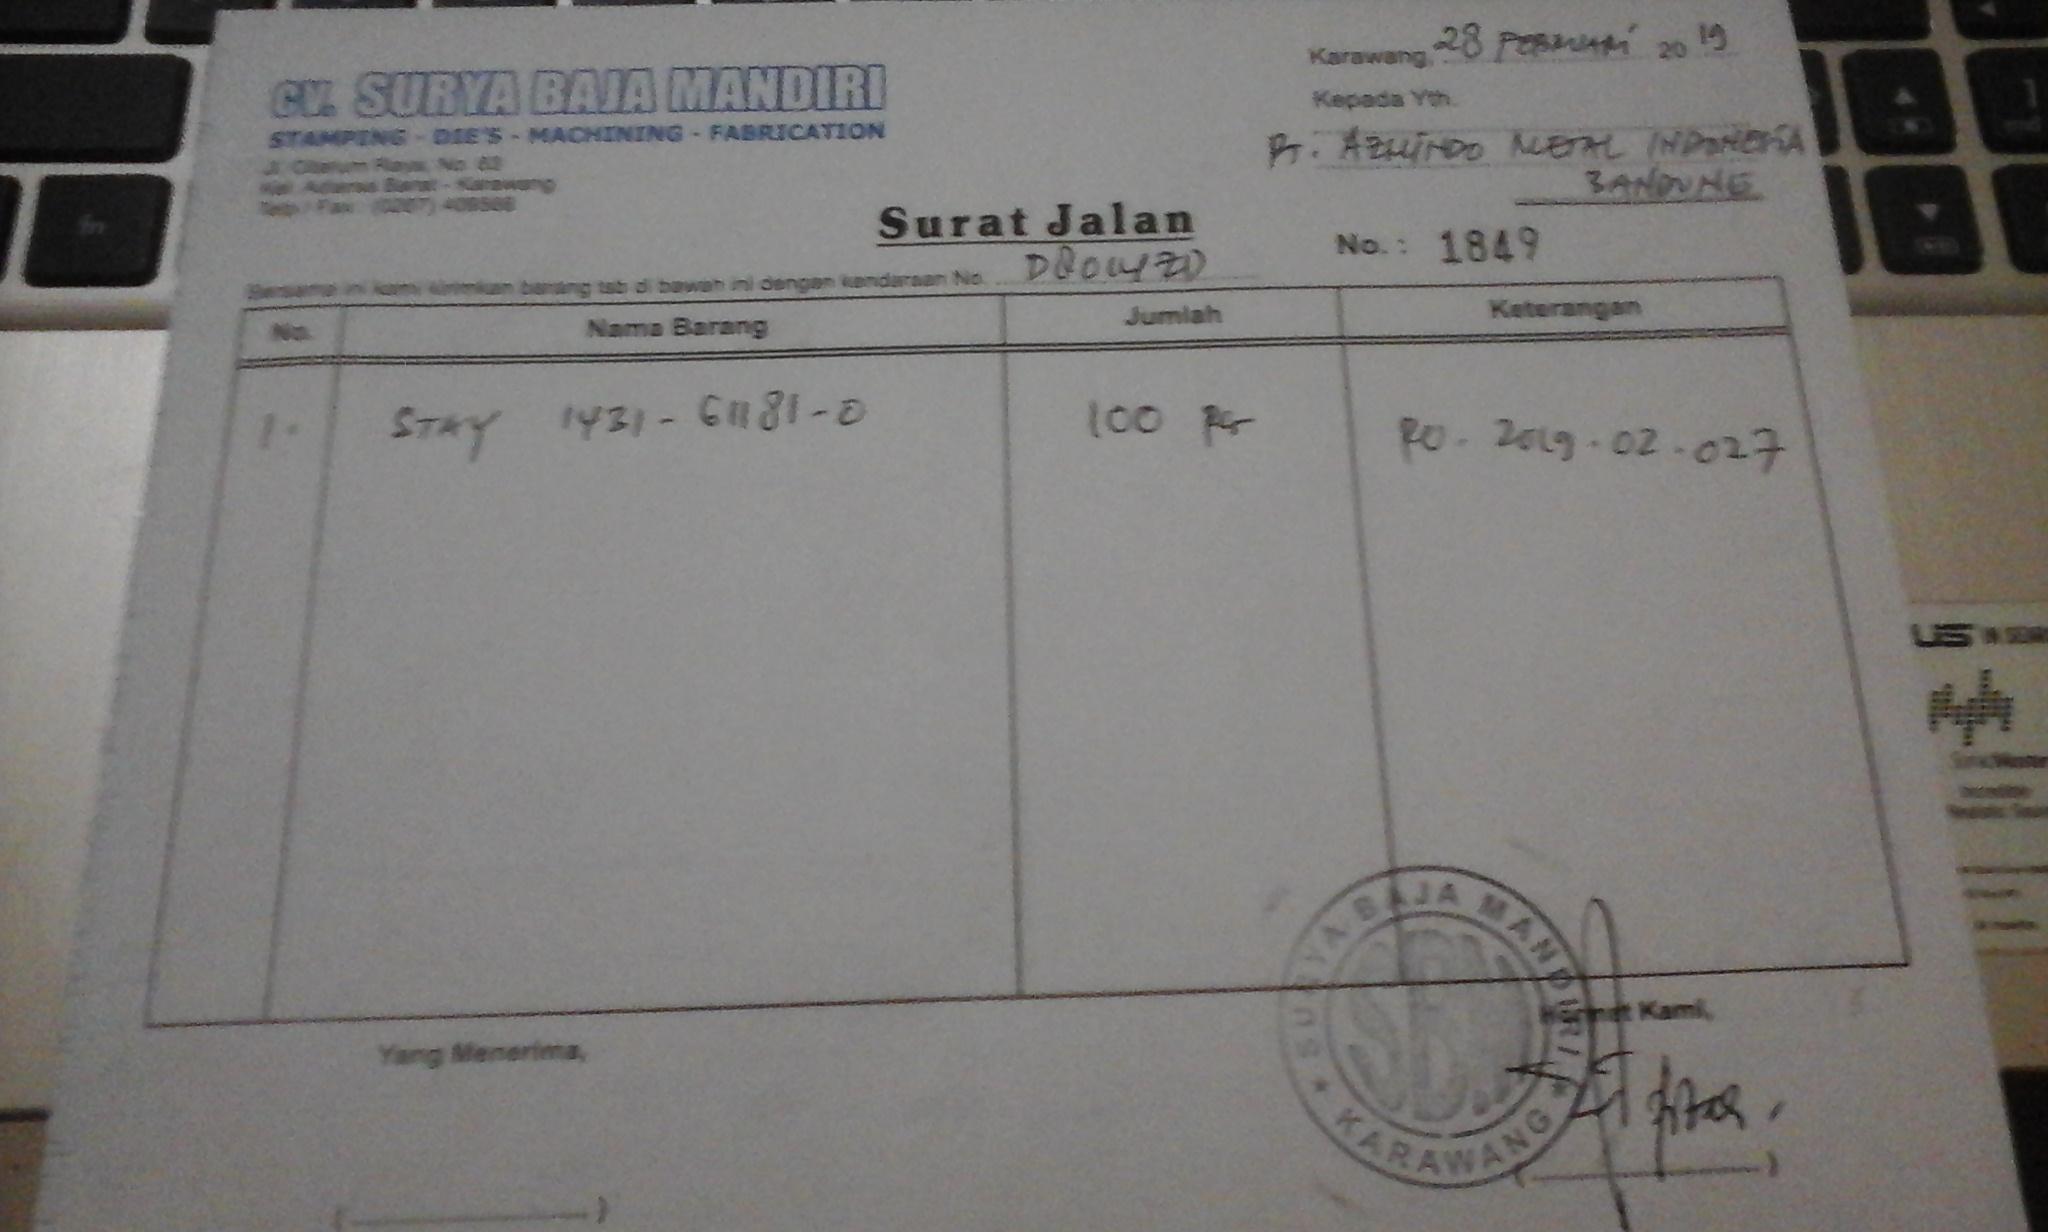 CV. SURYA BAJA MANDIRI
STAMPING - DIE'S - MACHINING - FABRICATION
Jl. Citarum Raya, No. 62
Kel. Adiarsa Barat - Karawang
Telp / Fax : (0267)
Karawang, 28 Februari 2019
Kepada Yth.
PT. AZMINDO METAL INDONESIA
BANDUNG
Surat Jalan
No. : 1849
Bersama ini kami kirimkan barang tsb di bawah ini dengan kendaraan No.
No. Nama Barang Jumlah Keterangan
1. STAY 1431-61181-0 100 PO. 2019.02.027
Yang Menerima,
Hormat Kami,
SURYA BAJA MANDIRI
SBM
★ KARAWANG ★
US